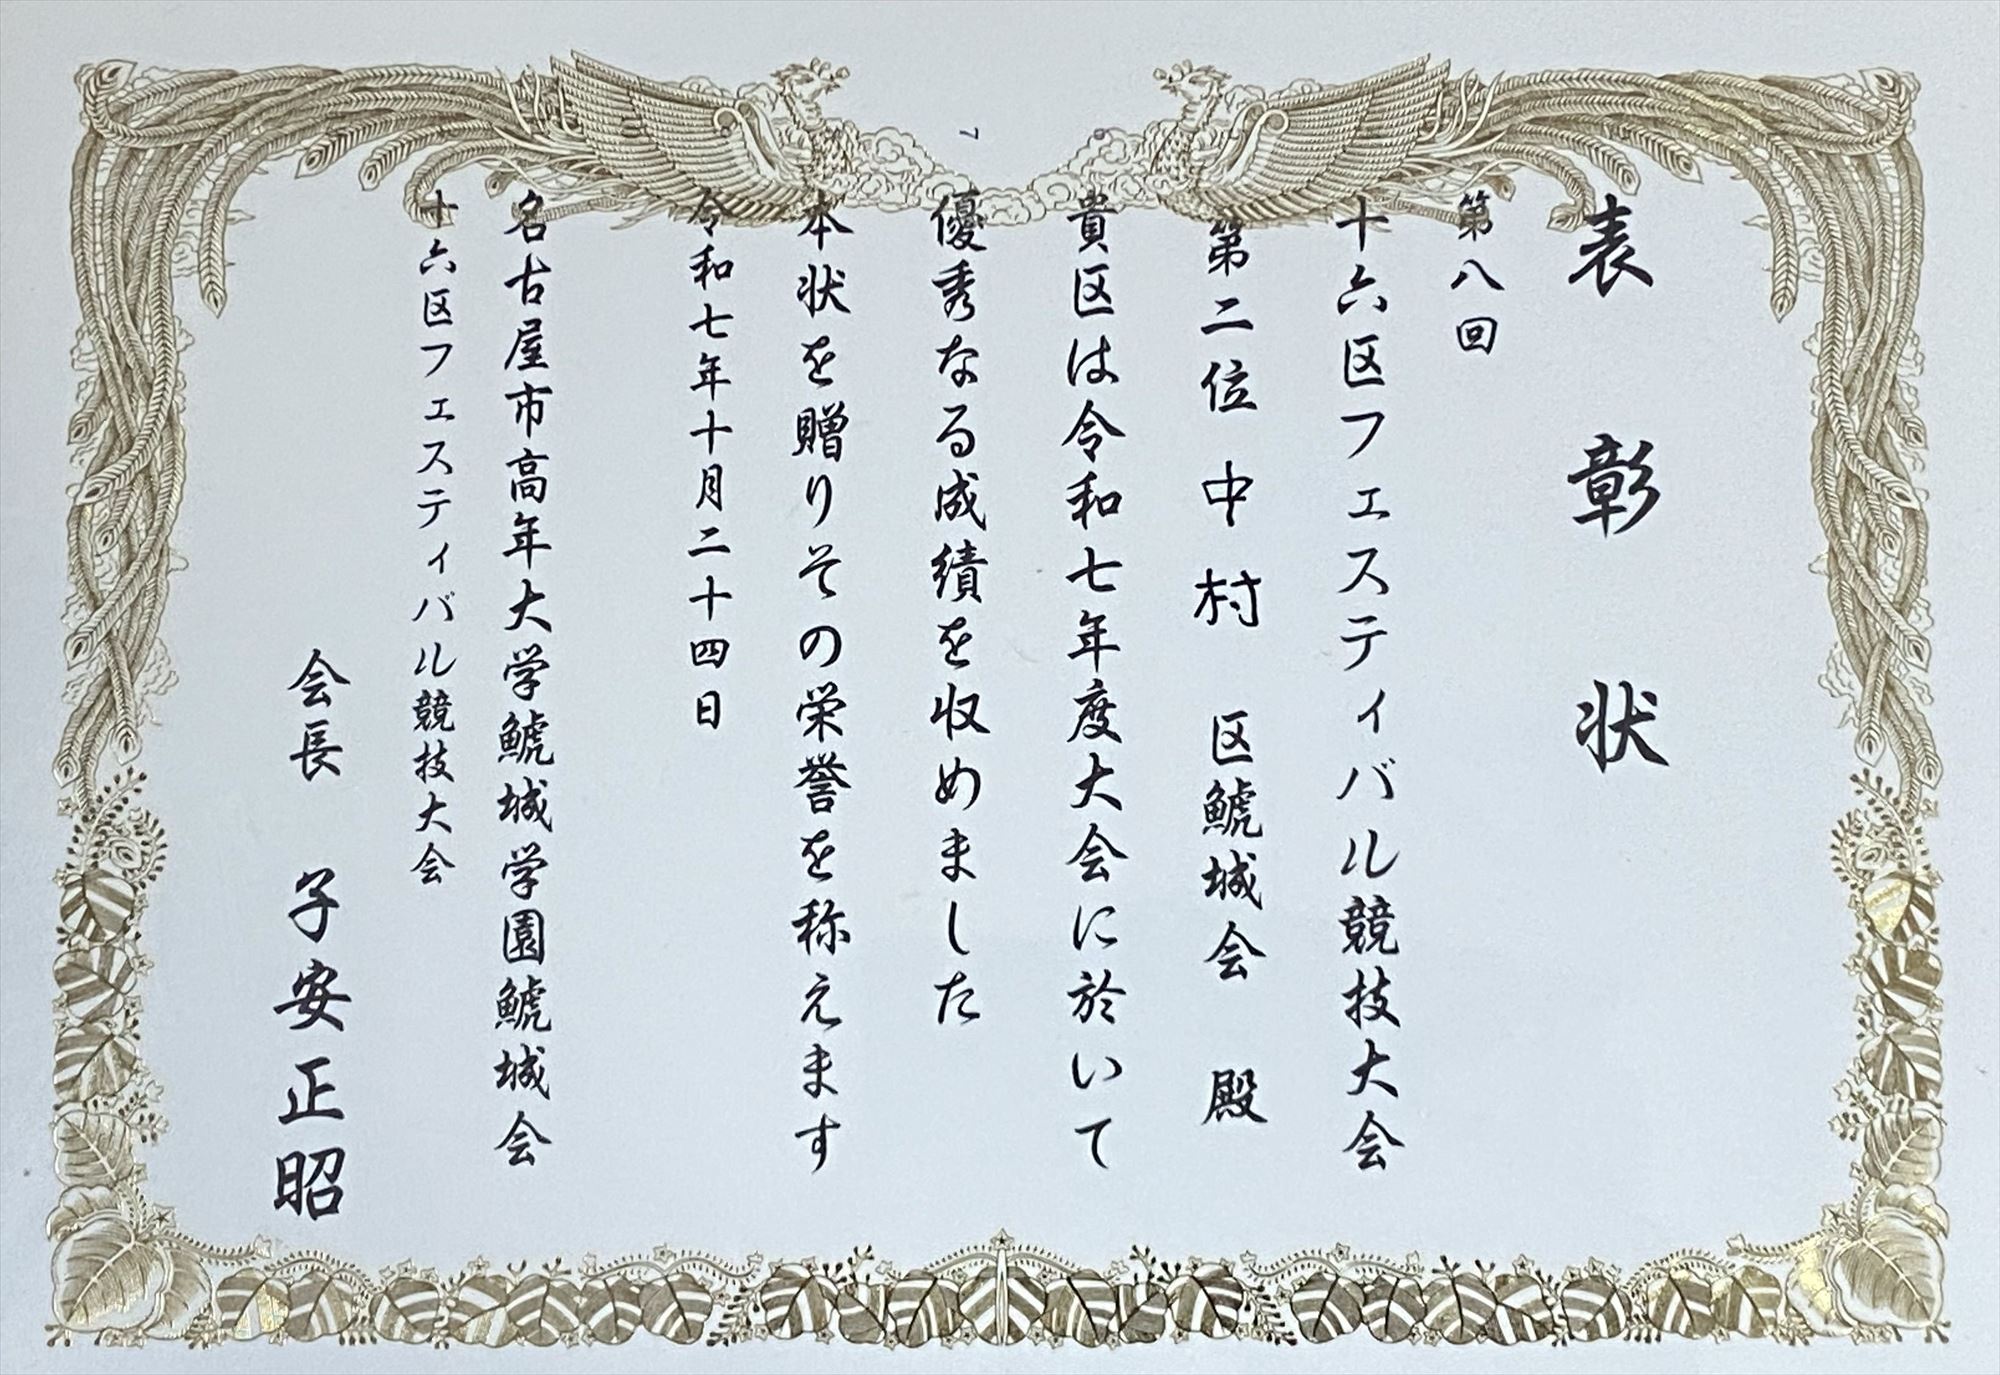 表彰状
第八回
十六区フェスティバル競技大会
第二位 中村 区鯱城会 殿
貴区は令和七年度大会に於いて
優秀なる成績を収めました
本状を贈りその栄誉を称えます
令和七年十月二十四日
名古屋市高年大学鯱城学園鯱城会
十六区フェスティバル競技大会
会長 子安正昭